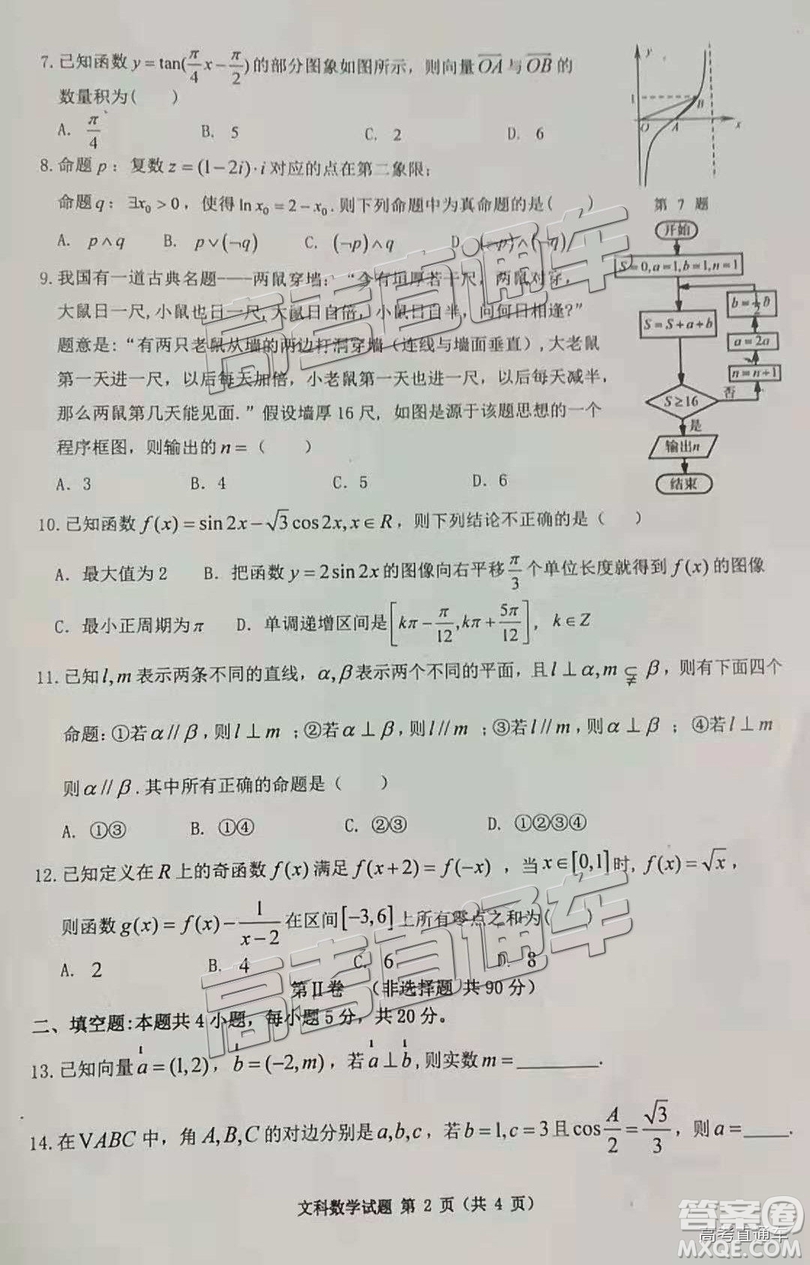 7. 已知函数 y=tan(π/4 x-π/2)的部分图象如图所示，则向量OA与OB的
数量积为(　　)
A. π/4　B. 5　C. 2　D. 6
y
1
B
O
A
x
第 7 题
8. 命题 p：复数 z=(1-2i)·i 对应的点在第二象限；
命题 q：∃x₀>0，使得 ln x₀=2-x₀. 则下列命题中为真命题的是(　　)
A. p∧q　B. p∨(¬q)　C. (¬p)∧q　D. (¬p)∧(¬q)
9. 我国有一道古典名题——两鼠穿墙：“今有垣厚若干尺，两鼠对穿，
大鼠日一尺，小鼠也日一尺，大鼠日自倍，小鼠日自半，问何日相逢？”
题意是：“有两只老鼠从墙的两边打洞穿墙（连线与墙面垂直），大老鼠
第一天进一尺，以后每天加倍，小老鼠第一天也进一尺，以后每天减半，
那么两鼠第几天能见面.”假设墙厚 16 尺，如图是源于该题思想的一个
程序框图，则输出的 n=（　　）
A. 3　B. 4　C. 5　D. 6
开始
S=0,a=1,b=1,n=1
S=S+a+b
b=1/2 b
a=2a
n=n+1
S≥16
否
是
输出n
结束
10. 已知函数 f(x)=sin2x-√3cos2x,x∈R，则下列结论不正确的是（　　）
A. 最大值为 2　B. 把函数 y=2sin2x 的图像向右平移 π/3 个单位长度就得到 f(x) 的图像
C. 最小正周期为 π　D. 单调递增区间是[kπ-π/12,kπ+5π/12]，k∈Z
11. 已知 l,m 表示两条不同的直线，α,β 表示两个不同的平面，且 l⊥α,m⫋β，则有下面四个
命题：①若 α//β，则 l⊥m；②若 α⊥β，则 l//m；③若 l//m，则 α⊥β；④若 l⊥m
则 α//β. 其中所有正确的命题是（　　）
A. ①③　B. ①④　C. ②③　D. ①②③④
12. 已知定义在 R 上的奇函数 f(x) 满足 f(x+2)=f(-x)，当 x∈[0,1] 时，f(x)=√x，
则函数 g(x)=f(x)-1/(x-2) 在区间[-3,6]上所有零点之和为(　　)
A. 2　B. 4　C. 6　D. 8
第Ⅱ卷　（非选择题 共 90 分）
二、填空题：本题共 4 小题，每小题 5 分，共 20 分。
13. 已知向量 a=(1,2)，b=(-2,m)，若 a⊥b，则实数 m=________.
14. 在 VABC 中，角 A,B,C 的对边分别是 a,b,c，若 b=1,c=3 且 cos A/2=√3/3，则 a=____.
文科数学试题 第 2 页（共 4 页）
高考直通车
高考直通车
答案圈
高考直通车
MXQE.COM